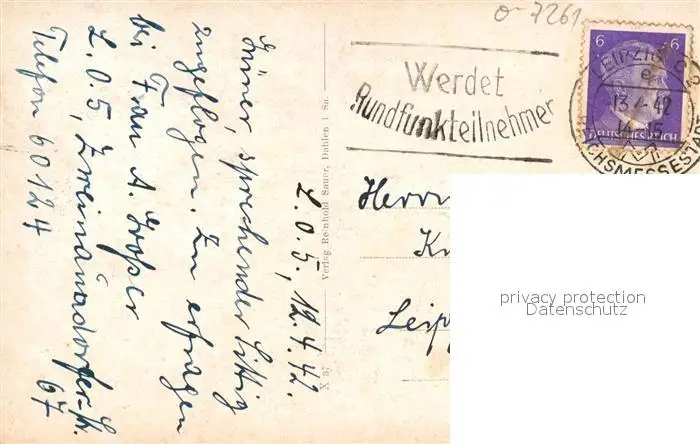 o-7261
Werdet
Rundfunkteilnehmer
6 6
LEIPZIG C2
e
13.4.42
DEUTSCHES REICH
REICHSMESSESTADT
Herrn
Leip
privacy protection
Datenschutz
Verlag Reinhold Sauer, Dahlen i. Sa.
X 37
L.O.5, 12.4.42.
Grüner, sprechender Sittig
zugeflogen. Zu erfragen
bei Frau A. Großer
L.O.5, Zweinaundorfer-Str.
67
Telefon 60124